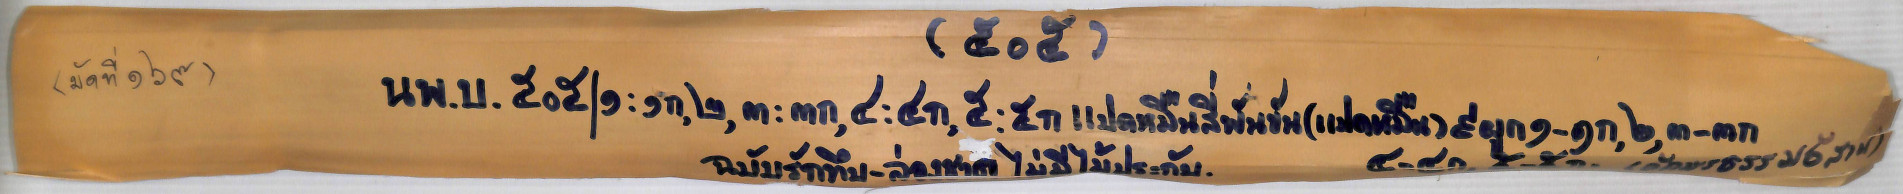 (๕๐๕)
(มัดที่ ๑๖๙)
นพ.บ. ๕๐๕/๑:๑ก,๒,๓:๓ก,๔:๔ก,๕:๕ก แปดหมื่นสี่พันขันธ์(แปดหมื่น) ๙ ผูก ๑-๑ก,๒,๓-๓ก
ฉบับรักทึบ-ล่องชาด ไม่มีไม้ประกับ. ๔-๔ก, ๕-๕ก (อักษรธรรมอีสาน)